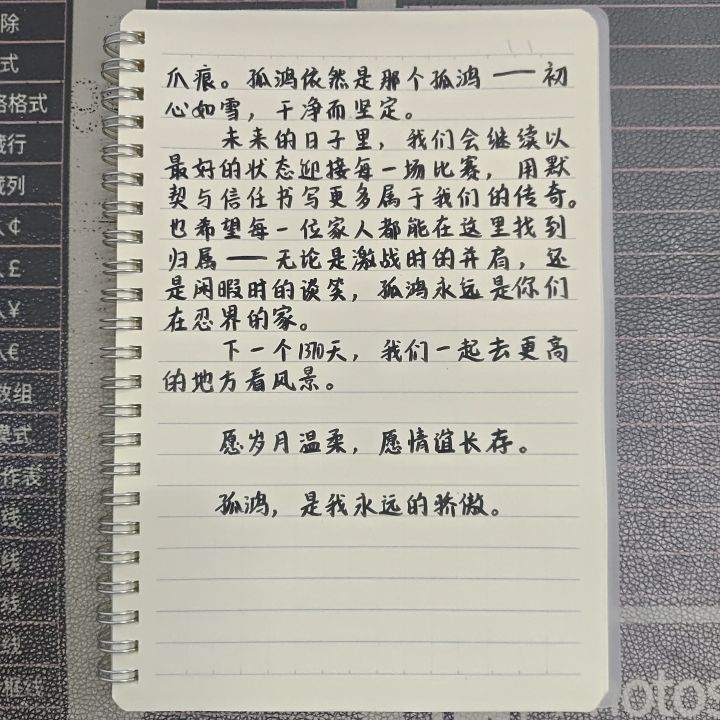 爪痕。孤鸿依然是那个孤鸿——初
心如雪，干净而坚定。
未来的日子里，我们会继续以
最好的状态迎接每一场比赛，用默
契与信任书写更多属于我们的传奇。
也希望每一位家人都能在这里找到
归属——无论是激战时的并肩，还
是闲暇时的谈笑，孤鸿永远是你们
在忍界的家。
下一个1370天，我们一起去更高
的地方看风景。
愿岁月温柔，愿情谊长存。
孤鸿，是我永远的骄傲。
除
式
格式
行
列
¢
£
¥
€
数组
模式
作表
线
线
线
线
框线
otos